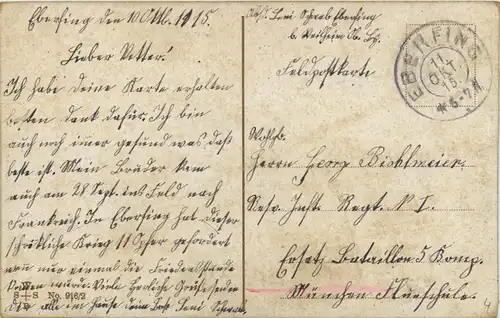 Eberfing den 10 Okt. 1915.
Lieber Vetter!
Ich habe deine Karte erhalten
besten dank dafür. Ich bin
auch noch imer gesund was daß
beste ist. Mein Bruder kam
auch am 28 Sept. ins Feld nach
Frankreich. In Eberfing hat dieser
schrökliche Krieg 11 Opfer gefordert
wen nur einmal die Friedensstunde
kommen würde. Viele herzliche Grüße senden
dir alle im Hause dein Bas. Leni Schwab
S S No. 916/2
Abs. Leni Schwab Eberfing
b. Weilheim Ob. By.
Feldpostkarte
EBERFING
11
OKT
15
6-7 N
Wohlgb.
Herrn Georg Bichlmeier
Resv. Inft. Regt. N I.
Ersatz Bataillon 5 Komp.
München
4